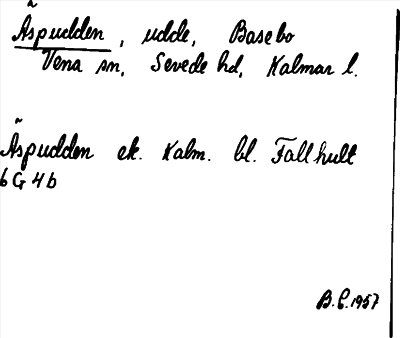 Äspudden, udde, Basebo
Vena sn, Sevede hd, Kalmar l.
Äspudden ek. Kalm. bl. Fallhult
6G4b
B.E. 1957